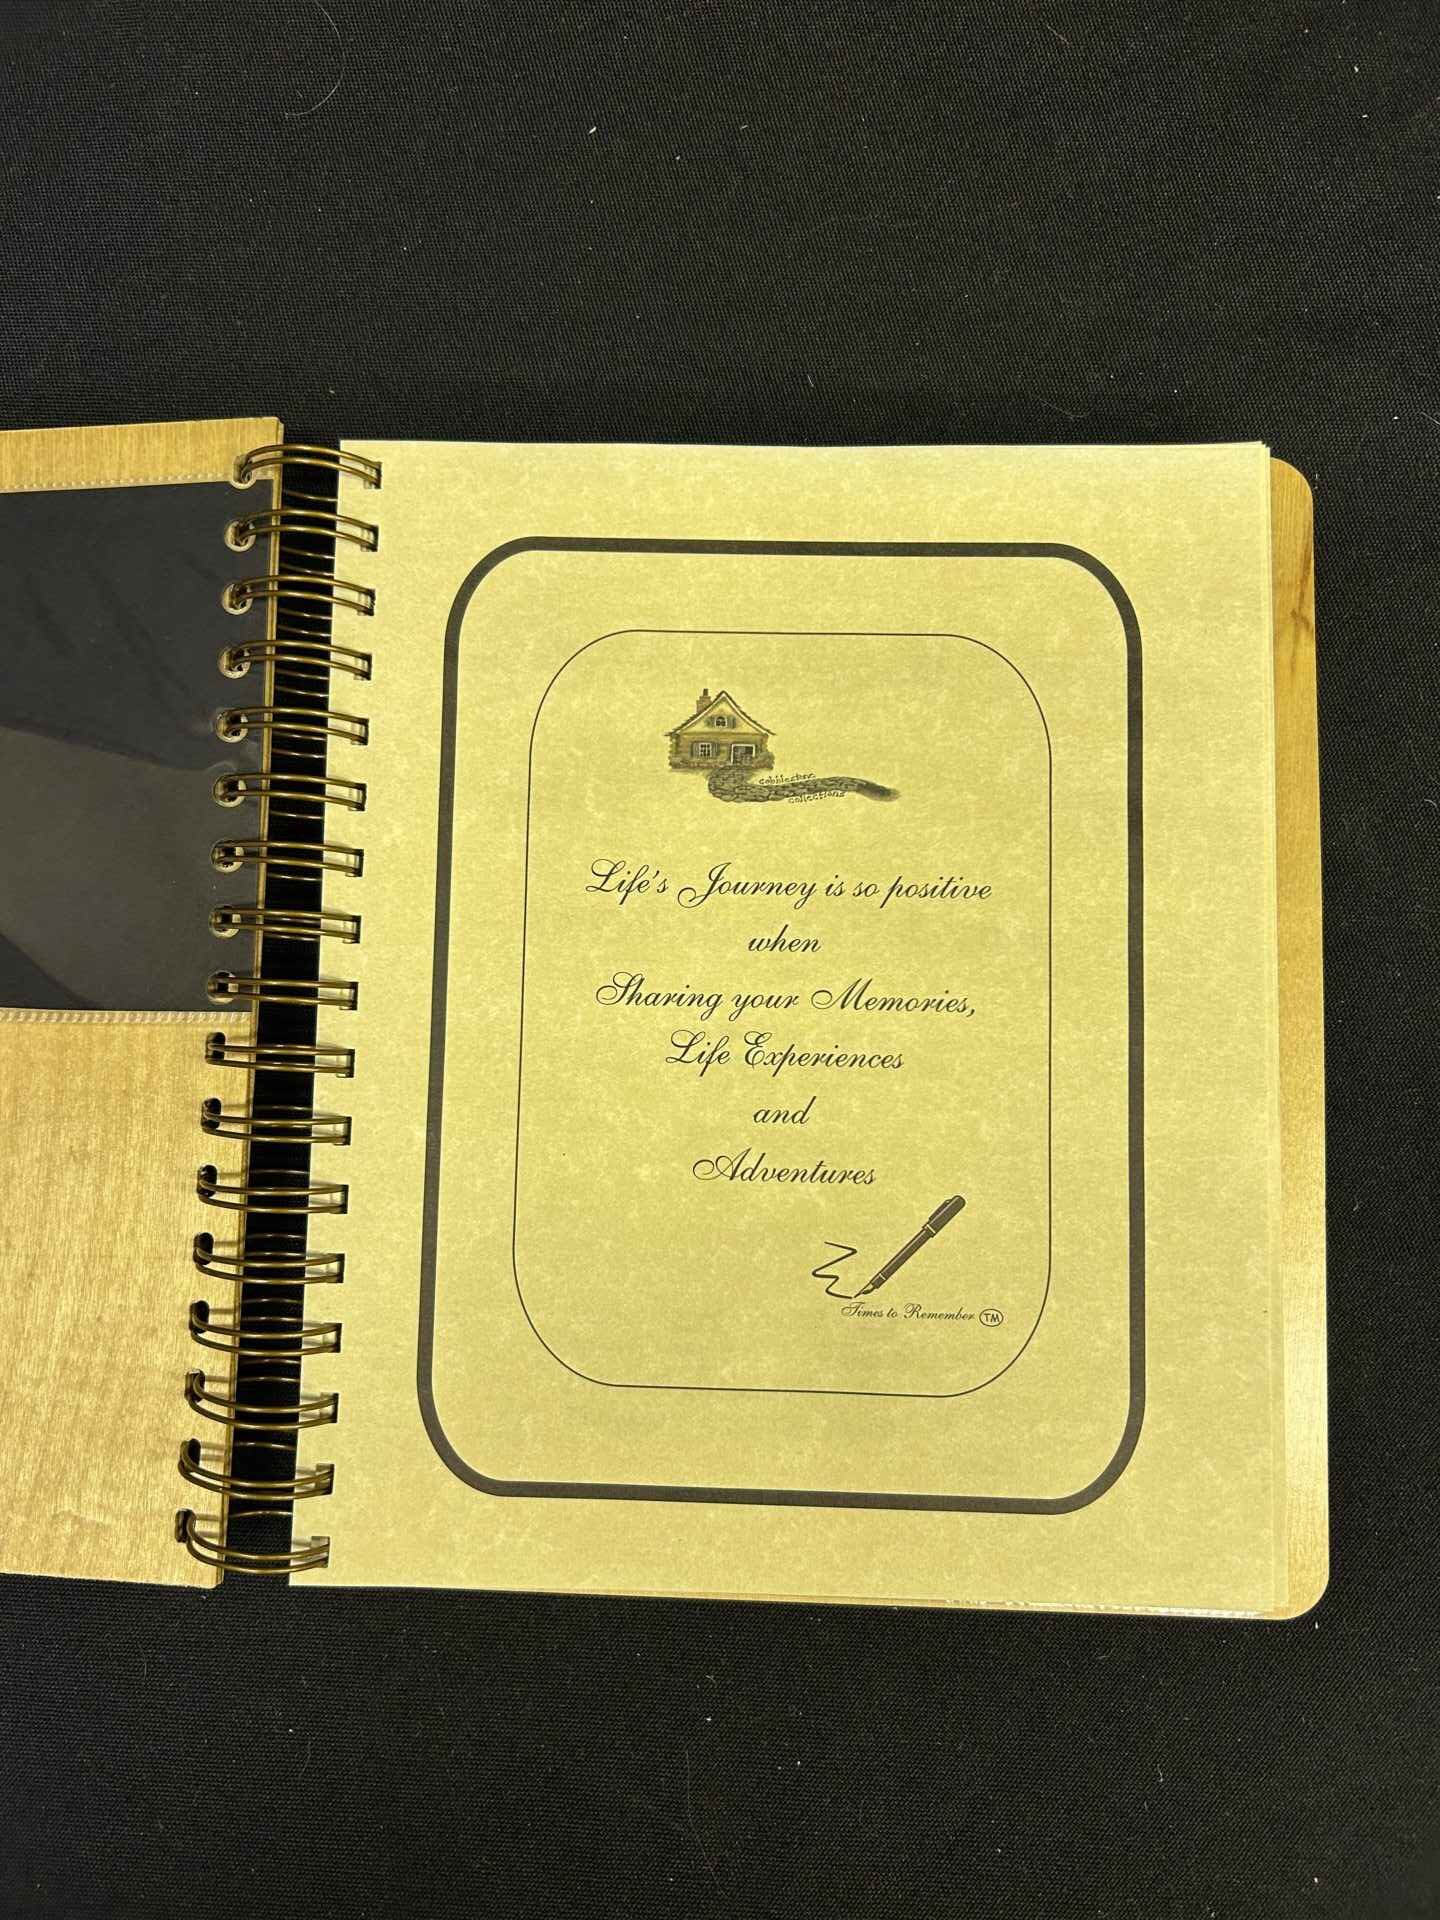 cobblestone
collections
Life's Journey is so positive
when
Sharing your Memories,
Life Experiences
and
Adventures
Times to Remember TM